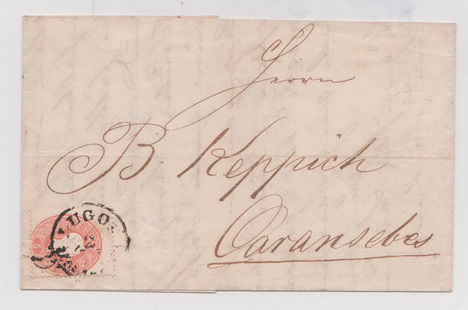 Herrn
B. Keppich
Caransebes
LUGOS